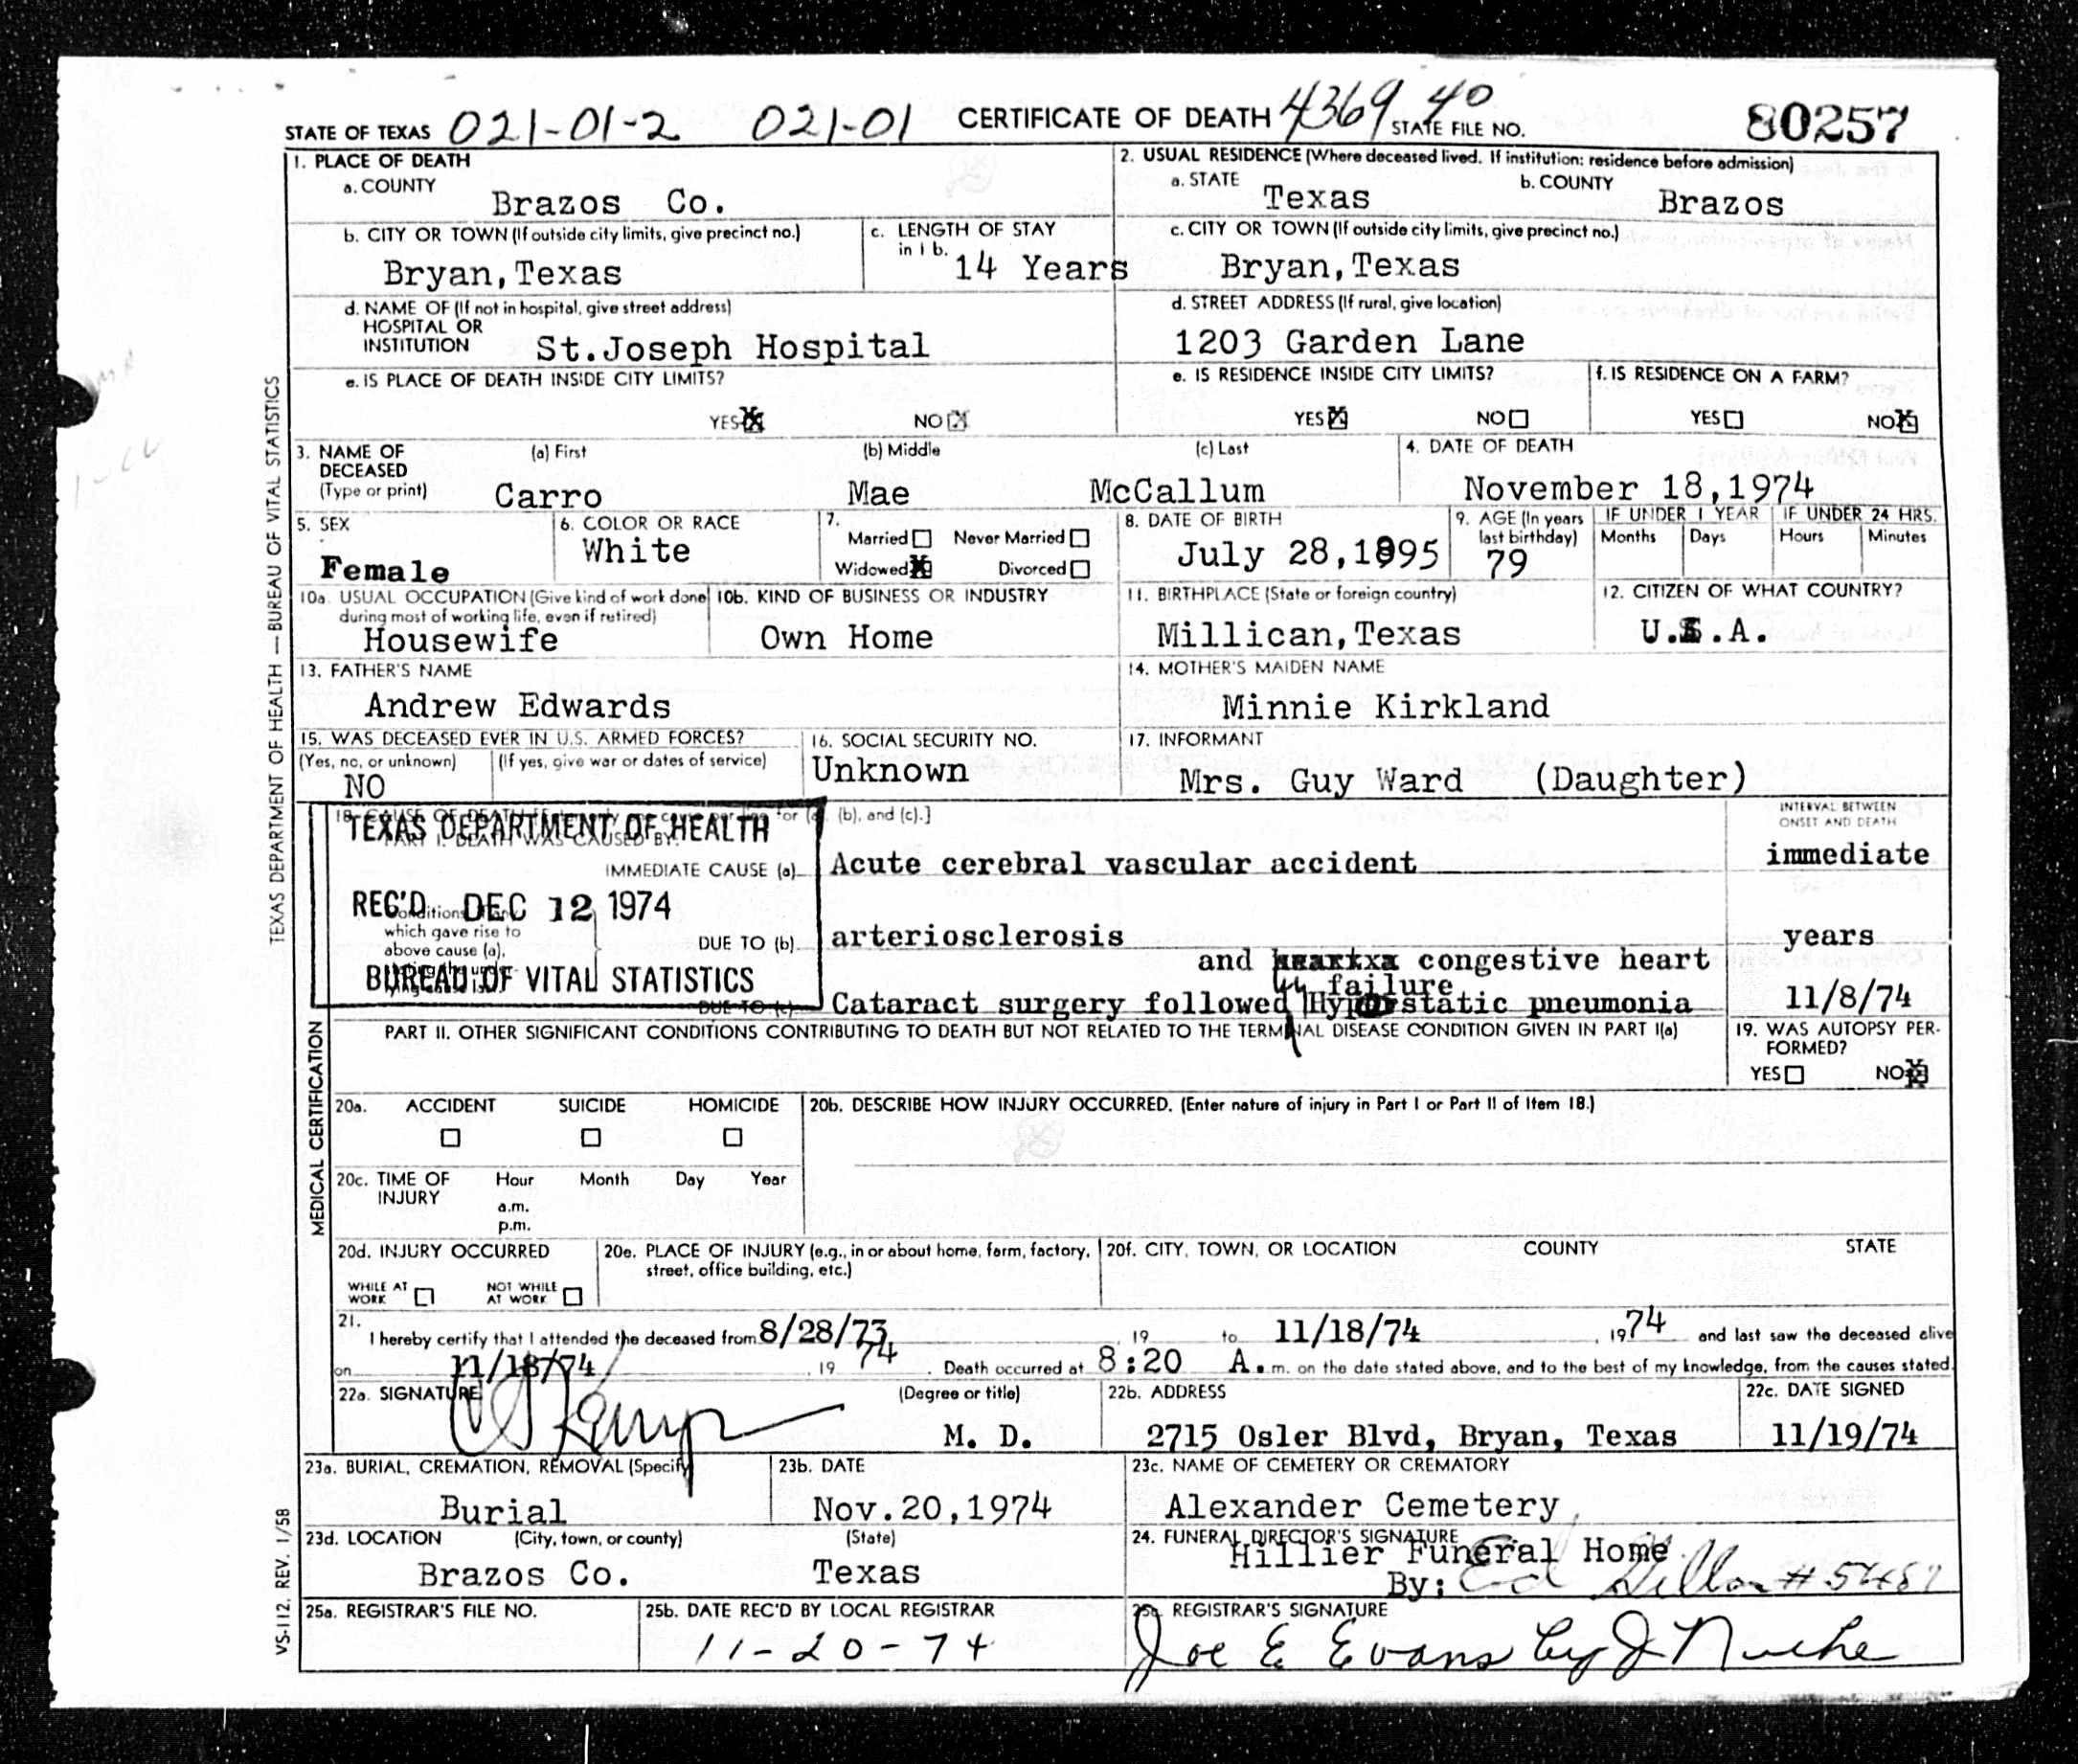 STATE OF TEXAS 021-01-2 021-01 CERTIFICATE OF DEATH 4369 40 STATE FILE NO. 80257
1. PLACE OF DEATH
a. COUNTY Brazos Co.
2. USUAL RESIDENCE (Where deceased lived. If institution: residence before admission)
a. STATE Texas b. COUNTY Brazos
b. CITY OR TOWN (If outside city limits, give precinct no.) Bryan,Texas
c. LENGTH OF STAY in 1 b. 14 Years
c. CITY OR TOWN (If outside city limits, give precinct no.) Bryan,Texas
d. NAME OF (If not in hospital, give street address)
HOSPITAL OR
INSTITUTION St.Joseph Hospital
d. STREET ADDRESS (If rural, give location)
1203 Garden Lane
e. IS PLACE OF DEATH INSIDE CITY LIMITS?
YES NO
e. IS RESIDENCE INSIDE CITY LIMITS?
YES NO
f. IS RESIDENCE ON A FARM?
YES NO
3. NAME OF DECEASED (Type or print)
(a) First (b) Middle (c) Last
Carro Mae McCallum
4. DATE OF DEATH
November 18,1974
5. SEX
Female
6. COLOR OR RACE
White
7.
Married Never Married
Widowed Divorced
8. DATE OF BIRTH
July 28,1895
9. AGE (In years last birthday)
79
IF UNDER 1 YEAR IF UNDER 24 HRS.
Months Days Hours Minutes
10a. USUAL OCCUPATION (Give kind of work done during most of working life, even if retired)
Housewife
10b. KIND OF BUSINESS OR INDUSTRY
Own Home
11. BIRTHPLACE (State or foreign country)
Millican,Texas
12. CITIZEN OF WHAT COUNTRY?
U.S.A.
13. FATHER'S NAME
Andrew Edwards
14. MOTHER'S MAIDEN NAME
Minnie Kirkland
15. WAS DECEASED EVER IN U.S. ARMED FORCES?
(Yes, no, or unknown) (If yes, give war or dates of service)
NO
16. SOCIAL SECURITY NO.
Unknown
17. INFORMANT
Mrs. Guy Ward (Daughter)
18. CAUSE OF DEATH (b), and (c).]
PART I. DEATH WAS CAUSED BY:
TEXAS DEPARTMENT OF HEALTH
REC'D DEC 12 1974
BUREAU OF VITAL STATISTICS
INTERVAL BETWEEN
ONSET AND DEATH
IMMEDIATE CAUSE (a) Acute cerebral vascular accident immediate
which gave rise to
above cause (a),
DUE TO (b) arteriosclerosis years
and congestive heart
failure
DUE TO (c) Cataract surgery followed by Hypostatic pneumonia 11/8/74
PART II. OTHER SIGNIFICANT CONDITIONS CONTRIBUTING TO DEATH BUT NOT RELATED TO THE TERMINAL DISEASE CONDITION GIVEN IN PART I(a)
19. WAS AUTOPSY PER-
FORMED?
YES NO
20a. ACCIDENT SUICIDE HOMICIDE
20b. DESCRIBE HOW INJURY OCCURRED. (Enter nature of injury in Part I or Part II of Item 18.)
20c. TIME OF INJURY Hour Month Day Year
a.m.
p.m.
20d. INJURY OCCURRED
WHILE AT WORK NOT WHILE AT WORK
20e. PLACE OF INJURY (e.g., in or about home, farm, factory, street, office building, etc.)
20f. CITY, TOWN, OR LOCATION COUNTY STATE
21.
I hereby certify that I attended the deceased from 8/28/73, 19 to 11/18/74, 1974 and last saw the deceased alive
on 11/18/74, 19 74. Death occurred at 8:20 A.m. on the date stated above, and to the best of my knowledge, from the causes stated.
22a. SIGNATURE (Degree or title)
M. D.
22b. ADDRESS
2715 Osler Blvd, Bryan, Texas
22c. DATE SIGNED
11/19/74
23a. BURIAL, CREMATION, REMOVAL (Specify)
Burial
23b. DATE
Nov.20,1974
23c. NAME OF CEMETERY OR CREMATORY
Alexander Cemetery
23d. LOCATION (City, town, or county) (State)
Brazos Co. Texas
24. FUNERAL DIRECTOR'S SIGNATURE
Hillier Funeral Home
By: Ed
25a. REGISTRAR'S FILE NO.
25b. DATE REC'D BY LOCAL REGISTRAR
11-20-74
REGISTRAR'S SIGNATURE
Joe E Evans by J
TEXAS DEPARTMENT OF HEALTH — BUREAU OF VITAL STATISTICS
MEDICAL CERTIFICATION
VS-112, REV. 1/58